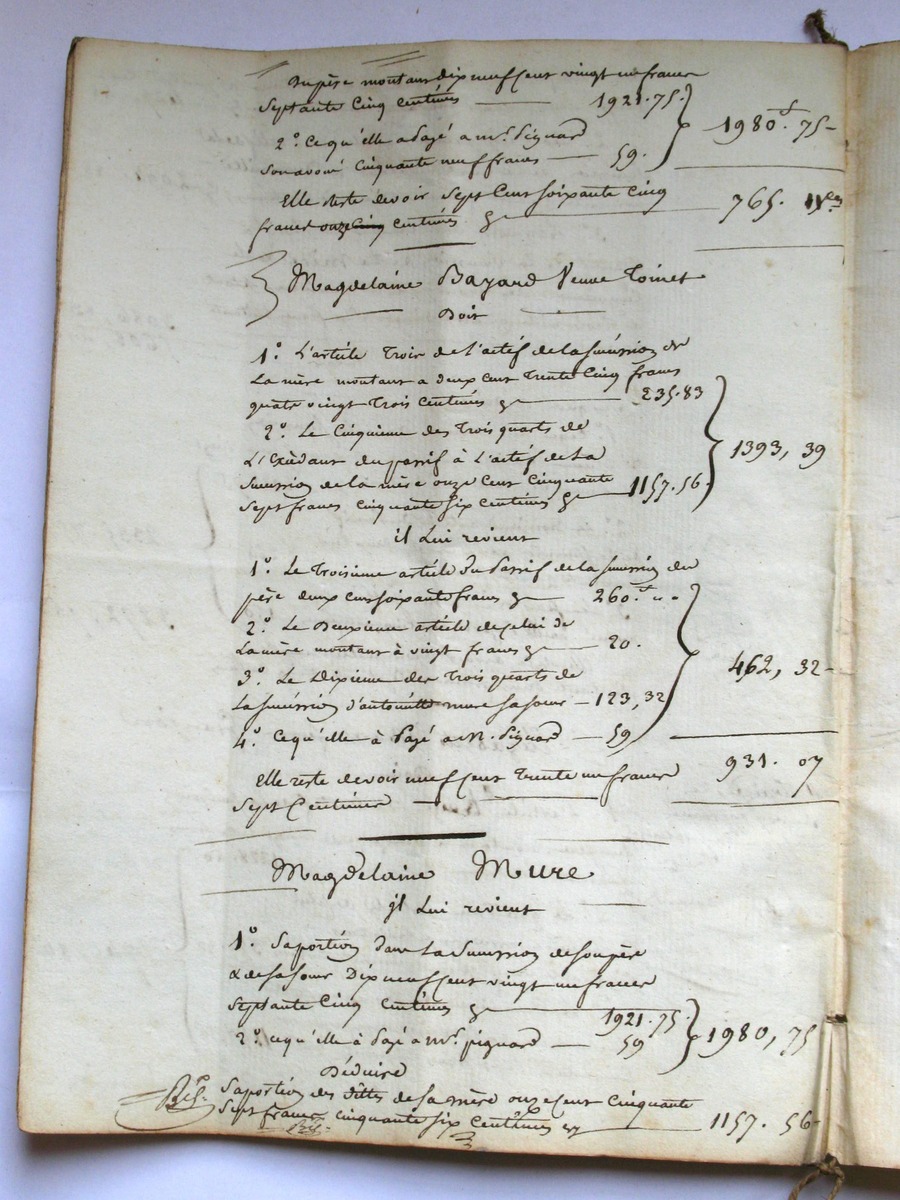 Du père montant dix neuf cent vingt un francs
Septante Cinq Centimes — 1921.75.
1980.f 75-
2.o Ce qu'elle a Payé a m.r Pignard
Son avoué Cinquante neuf francs — 59.
Elle reste devoir Sept Cent Soixante Cinq
francs onze Cinq Centimes — 765. 11.
Magdelaine Bayard Veuve Toinet
Doit
1.o L'article Trois de l'actif de la Succession de
La mère montant a deux cent Trente Cinq francs
quatre vingt Trois Centimes — 235.83
2.o Le Cinquieme des Trois quarts de
L'Excédant du passif à L'actif de La
1393, 39
Succession de la mère onze Cent Cinquante
Sept francs Cinquante Six Centimes — 1157.56.
il Lui revient
1.o Le Troisieme article du Passif de la Succession du
père deux cent soixante francs — 260.f "-
2.o Le Deuxieme article de celui de
La mère montant à vingt francs — 20.
3.o Le Dixieme des Trois quarts de
462, 32-
La Succession d'antoinette mure Sa Soeur — 123,32
4.o Ce qu'elle à Payé a M. Pignard — 59
Elle reste devoir neuf Cent Trente un francs
931. 07
Sept Centimes —
Magdelaine Mure
il Lui revient
1.o Sa portion dans La Succession de Son père
& de Sa Soeur Dix neuf Cent vingt un francs
Septante Cinq Centimes — 1921.75.
1980, 75
2.o ce qu'elle à Payé a m.r pignard — 59
Déduire
Sa portion des dettes de la mère onze Cent Cinquante
Sept francs cinquante Six Centimes — 1157. 56-